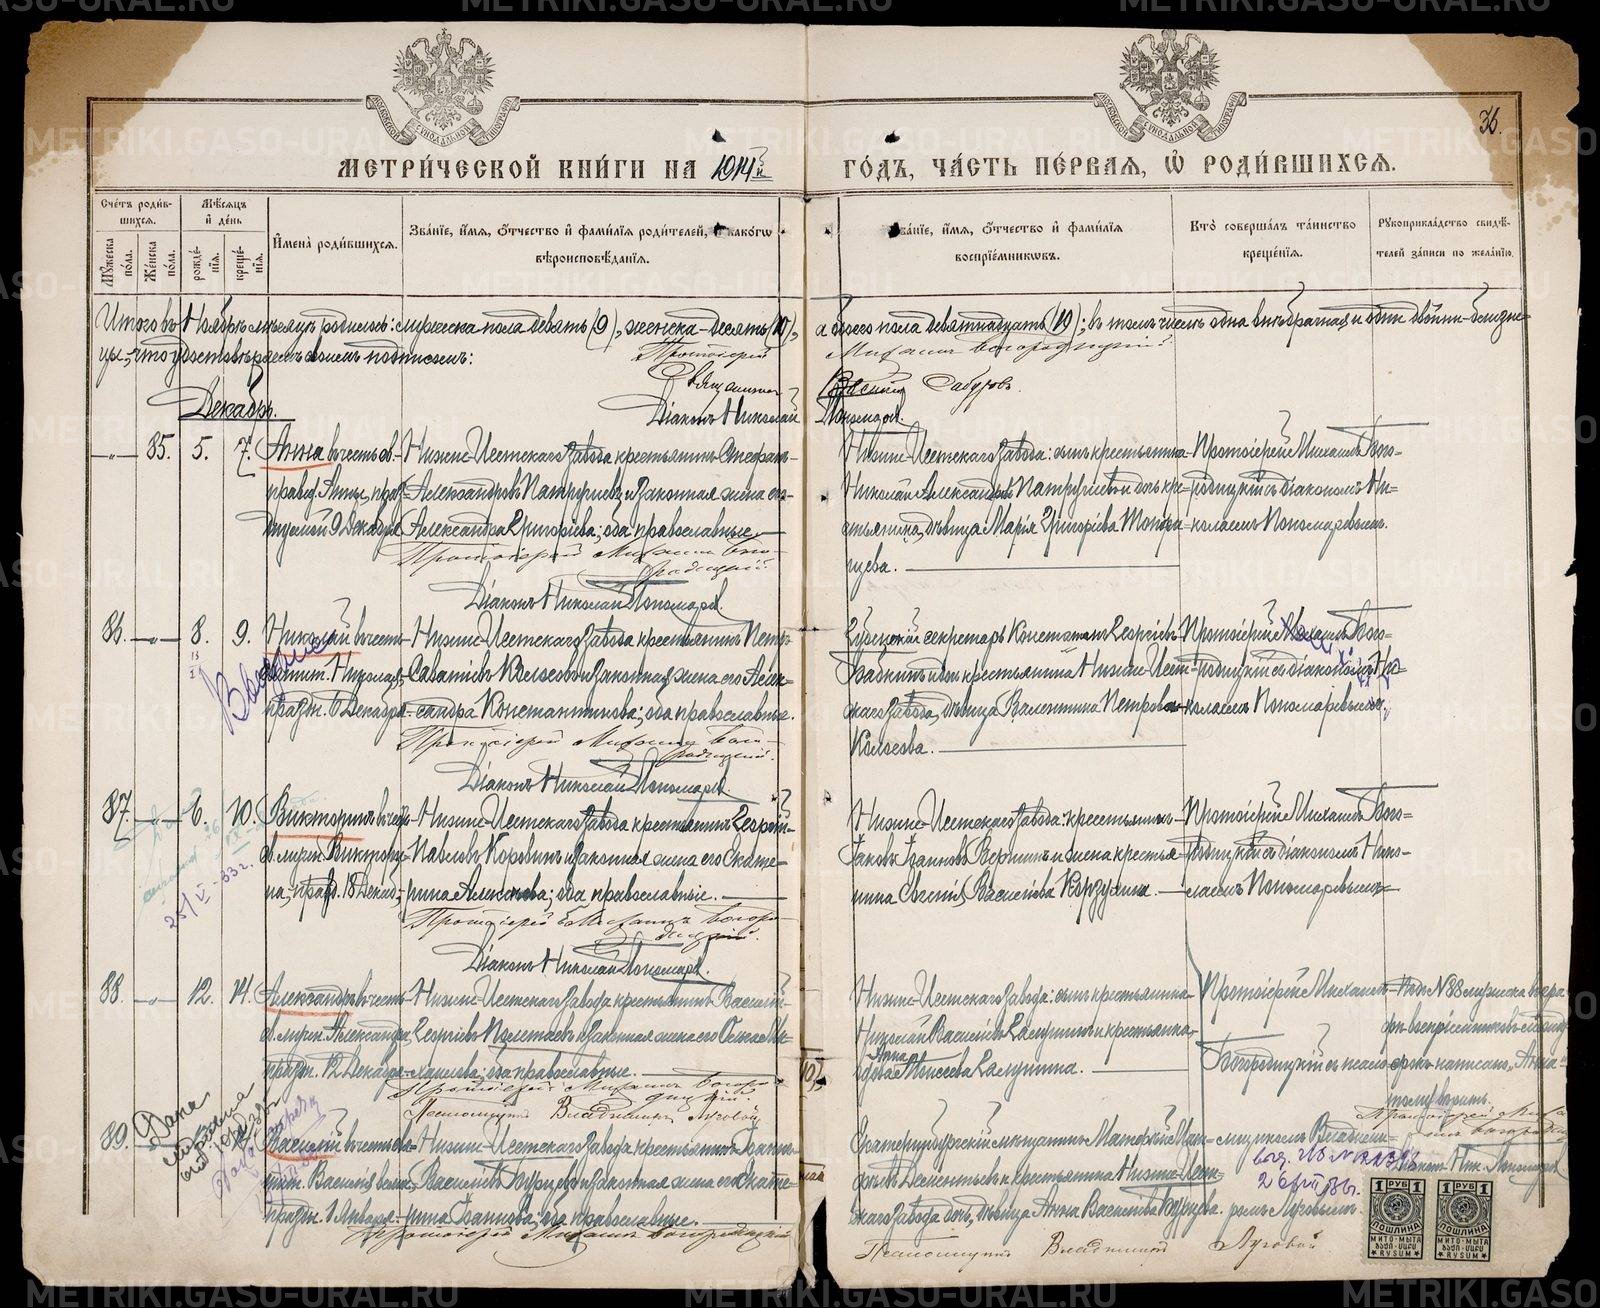 МЕТРИ́ЧЕСКОЙ КНИ́ГИ НА 1914й
ГО́ДЪ, ЧА́СТЬ ПЕ́РВАЯ, Ѡ҆ РОДИ́ВШИХСЯ.
36.
Сче́тъ роди́в-
шихся.
Мꙋ́жеска по́ла.
Же́нска по́ла.
Мѣ́сяцъ и҆ де́нь
рожде́-нїя.
креще́-нїя.
И҆мена̀ роди́вшихся.
Зва́нїе, и҆́мя, ѻ҆́тчество и҆ фами́лїя роди́телей, и҆ како́гѡ
вѣроисповѣ́данїя.
Зва́нїе, и҆́мя, ѻ҆́тчество и҆ фами́лїя
воспрїе́мникѡвъ.
Кто̀ соверша́лъ та́инство
креще́нїя.
Рꙋкоприкла́дство свидѣ́-
телей за́писи по жела́нїю.
Итого въ Ноябрѣ мѣсяцѣ родилось: мужеска пола девять (9), женска - десять (10), а обоего пола девятнадцать (19); въ томъ числѣ одна внѣбрачная и одни двойни-близне-
цы, что удостовѣряемъ своимъ подписомъ: Протоіерей Михаилъ Богородицкій
Священникъ Василій Сабуровъ.
Діаконъ Николай Пономаревъ.
Декабрь.
85. 5. 7. Анна въ честь св.
правед. Анны, праз-
днуемой 9 Декабря
Нижне-Исетскаго завода крестьянинъ Стефанъ
Александровъ Патрушевъ и законная жена его
Александра Григоріева; оба православные.
Протоіерей Михаилъ Бого-
родицкій.
Діаконъ Николай Пономаревъ.
Нижне-Исетскаго завода: сынъ крестьянина
Николай Александровъ Патрушевъ и дочь кре-
стьянина, дѣвица Марія Григоріева Топор-
ищева.
Протоіерей Михаилъ Бого-
родицкій съ діакономъ Ни-
колаемъ Пономаревымъ.
86. 8. 9. Николай въ честь
святит. Николая,
празн. 6 Декабря
Нижне-Исетскаго завода крестьянинъ Петръ
Саватіевъ и законная жена его Алек-
сандра Константинова; оба православные.
Протоіерей Михаилъ Бого-
родицкій.
Діаконъ Николай Пономаревъ.
Губернскій секретарь Константинъ Георгіевъ
Бабкинъ и дочь крестьянина Нижне-Исет-
скаго завода, дѣвица Валентина Петрова
Протоіерей Михаилъ Бого-
родицкій съ діакономъ Ни-
колаемъ Пономаревымъ.
87. 6. 10. Викторинъ въ честь
св. мучен. Виктори-
на, празд. 18 Декаб.
25/V-33 г.
Нижне-Исетскаго завода крестьянинъ Георгій
Павловъ Коровинъ и законная жена его Екате-
рина Алексѣева; оба православные.
Протоіерей Михаилъ Богоро-
дицкій.
Діаконъ Николай Пономаревъ.
Нижне-Исетскаго завода: крестьянинъ
Іаковъ Іоанновъ Вершинъ и жена крестья-
нина Евгенія Васильева Корзухина.
Протоіерей Михаилъ Бого-
родицкій съ діакономъ Нико-
лаемъ Пономаревымъ
88. 12. 14. Александръ въ честь
св. мучен. Александра,
празн. 12 Декабря
Нижне-Исетскаго завода крестьянинъ Василій
Георгіевъ Полетаевъ и законная жена его Ми-
хаилова; оба православные.
Протоіерей Михаилъ Богоро-
дицкій.
Псаломщикъ Владиміръ Луговой
Нижне-Исетскаго завода: сынъ крестьянина
Николай Васильевъ и крестьянка
Анна
Моисеева
Протоіерей Михаилъ
Богородицкій съ псало-
мщикомъ Владими-
ромъ Луговымъ.
Подъ №88 мужска въ гра-
фѣ воспріемниковъ между
строкъ написано „Анна"
тому вѣрить.
Протоіерей Миха-
илъ Богородицкій
Діаконъ Ник. Пономаревъ
89. Василій въ честь св.
Василія велик.,
празн. 1 Января.
Нижне-Исетскаго завода крестьянинъ Іоаннъ
Васильевъ Бурцевъ и законная жена его Екате-
рина Іоаннова; оба православные.
Протоіерей Михаилъ Богородицкій
Екатеринбургскій мѣщанинъ Матѳей Мат-
ѳеевъ Дементьевъ и крестьянина Нижне-Исет-
скаго завода дочь, дѣвица Анна Васильева Бурцева.
Псаломщикъ Владиміръ Луговой
1 РУБ 1
ПОШЛИНА
МИТО-МЫТА
RYSUM
1 РУБ 1
ПОШЛИНА
МИТО-МЫТА
RYSUM
METRIKI.GASO-URAL.RU